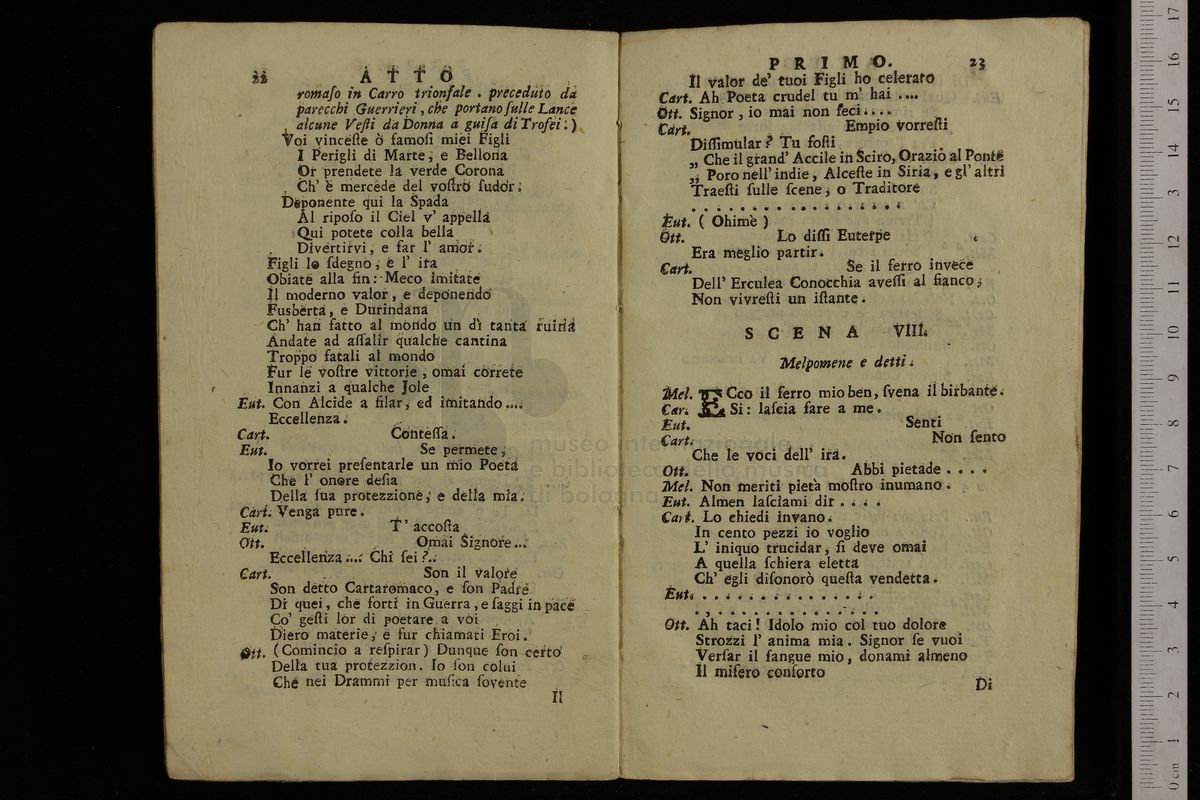 22 ATTO
romaſo in Carro trionfale . preceduto da
parecchi Guerrieri , che portano ſulle Lance
alcune Veſti da Donna a guiſa di Trofei : )
Voi vinceſte ò famoſi miei Figli
I Perigli di Marte, e Bellona
Or prendete la verde Corona
Ch' è mercede del voſtrò ſudor:
Deponente qui la Spada
Al ripoſo il Ciel v' appella
Qui potete colla bella
Divertirvi, e far l' amor.
Figli lo ſdegno, e l' ira
Obiate alla fin: Meco imitate
Il moderno valor, e deponendo
Fusberta, e Durindana
Ch' han fatto al mondo un dì tanta ruina
Andate ad aſſalir qualche cantina
Troppo fatali al mondo
Fur le voſtre vittorie , omai correte
Innanzi a qualche Jole
Eut. Con Alcide a filar, ed imitando....
Eccellenza.
Cart. Conteſſa.
Eut. Se permete,
Io vorrei preſentarle un mio Poeta
Che l' onore deſia
Della ſua protezzione, e della mia.
Cart. Venga pure.
Eut. T' accoſta
Ott. Omai Signore...
Eccellenza.... Chi ſei?..
Cart. Son il valore
Son detto Cartaromaco, e ſon Padre
Di quei, che forti in Guerra, e ſaggi in pace
Co' geſti lor di poetare a voi
Diero materie, e fur chiamati Eroi.
Ott. (Comincio a reſpirar) Dunque ſon certo
Della tua protezzion. Io ſon colui
Che nei Drammi per muſica ſovente
Il
PRIMO. 23
Il valor de' tuoi Figli ho celerato
Cart. Ah Poeta crudel tu m' hai ....
Ott. Signor , io mai non feci....
Cart. Empio vorreſti
Diſſimular? Tu foſti
„ Che il grand' Accile in Sciro, Orazio al Ponte
„ Poro nell' indie, Alceſte in Siria, e gl' altri
Traeſti ſulle ſcene, o Traditore
. . . . . . . . . . . . . . . . . .
Eut. ( Ohimè )
Ott. Lo diſſi Euterpe
Era meglio partir.
Cart. Se il ferro invece
Dell' Erculea Conocchia aveſſi al fianco,
Non vivreſti un iſtante.
SCENA VIII.
Melpomene e detti.
Mel. ECco il ferro mio ben, ſvena il birbante.
Car. Si: laſcia fare a me.
Eut. Senti
Cart. Non ſento
Che le voci dell' ira.
Ott. Abbi pietade . . . .
Mel. Non meriti pietà moſtro inumano.
Eut. Almen laſciami dir . . . .
Cart. Lo chiedi invano.
In cento pezzi io voglio
L' iniquo trucidar, ſi deve omai
A quella ſchiera eletta
Ch' egli diſonorò queſta vendetta.
Eut. . . . . . . . . . . . . . .
. . . . . . . . . . . . . . .
Ott. Ah taci! Idolo mio col tuo dolore
Strozzi l' anima mia. Signor ſe vuoi
Verſar il ſangue mio, donami almeno
Il miſero conforto
Di
museo internazionale
e biblioteca della musica
di bologna
0 cm 1 2 3 4 5 6 7 8 9 10 11 12 13 14 15 16 17